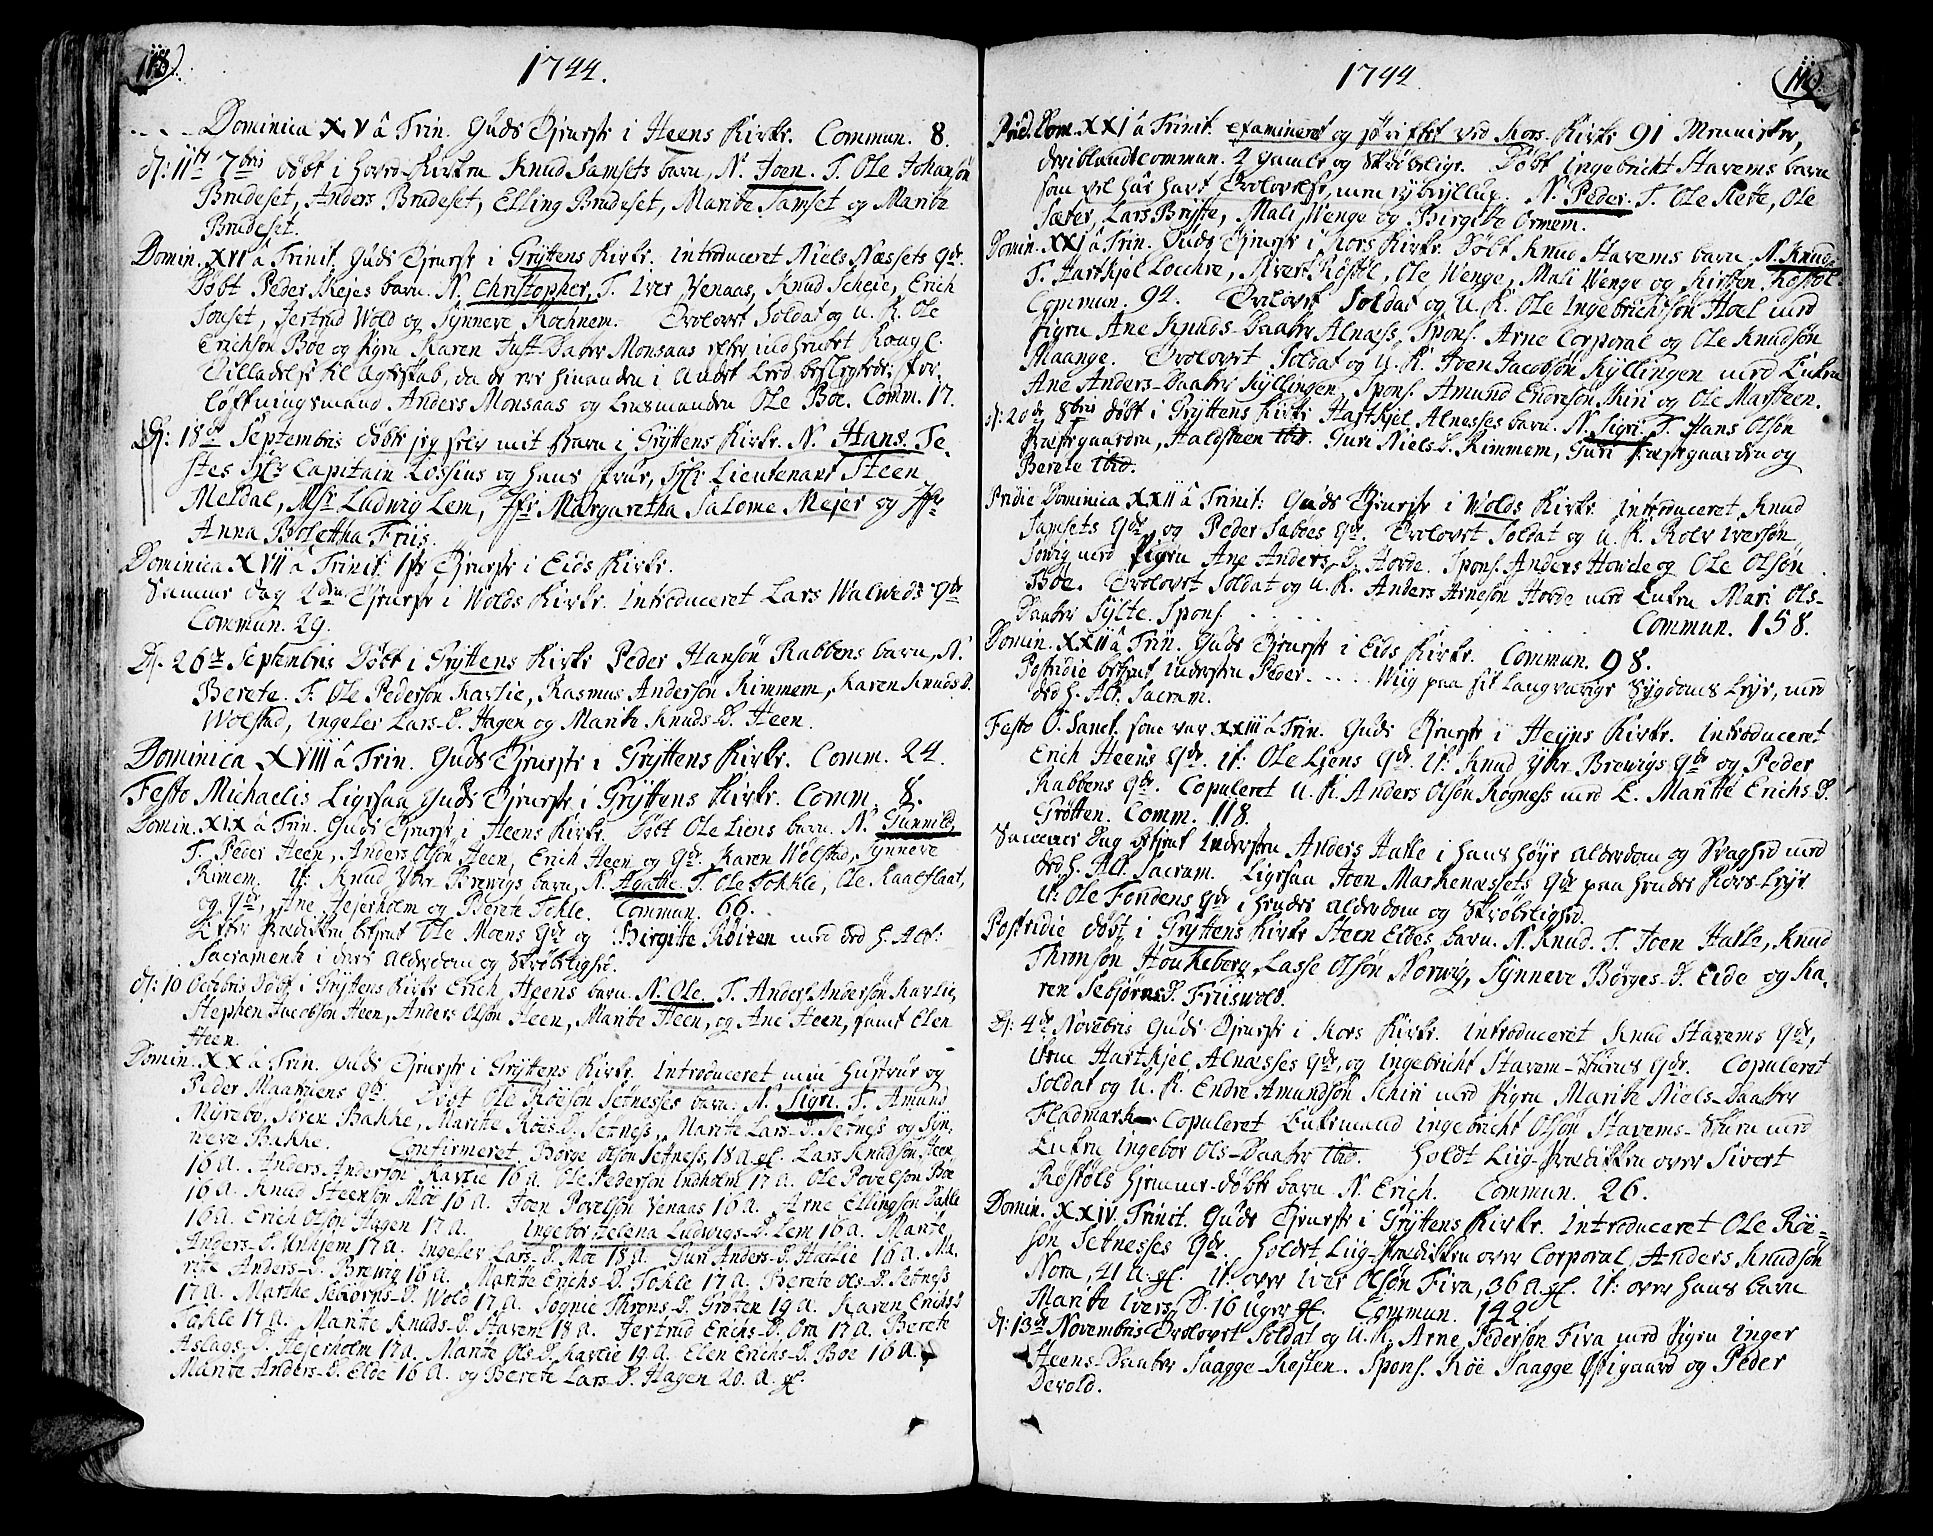 118.
1744.
Dominica XV â Trin. Guds Tjeneste i Heens Kirke. Commun. 8.
d: 11te 7bris døbt i Hoved-Kirken Knud Samsets barn, N. Joen. T. Ole Johansøn
Brudeset, Anders Brudeset, Elling Brudeset, Marite Samset og Marite
Brudeset.
Domin. XVI â Trinit. Guds Tjeneste i Gryttens Kirke. Introduceret Niels Næssets Qde.
Døbt Peder Skejes barn. N. Christopher, T. Iver Venaas, Knud Scheje, Erich
Sonset, Jertrud Wold og Synneve Kochnem. Trolovet Soldat og U. K. Ole
Erichsøn Boe og Pigen Karen Just-Daater Monsaas efter indhentet Kongl.
Tilladelse til Ægteskab, da de ere hinanden i andet Leed beslegtede; for-
løftningsmænd Anders Monsaas og Lensmanden Ole Boe. Comm. 17.
D: 18de Septembris døbte jeg selv mit barn i Gryttens Kirke. N. Hans. Te-
stes Hr Capitain Lossius og hans frue, Hr Lieutenant Steen
Meldal, Msr Ludwig Lem, Jfr Margaretha Salome Mejer og Jfr
Anna Bolettha Friis.
Dominica XVII â Trinit. 1ste Tjeneste i Eids Kirke.
Samme dag 2den Tjeneste i Wolds Kirke. Introduceret Lars Walweds Qde
Commun. 29.
D. 26de Septembris Døbt i Gryttens Kirke Peder Hansøn Rabbens barn, N.
Berete. T. Ole Pedersøn Karlie, Rasmus Andersøn Rimmem, Karen Knuds D.
Wolstad, Ingeler Lars-D. Hagen og Marite Knuds-D. Heen.
Dominica XVIII â Trin. Guds Tjeneste i Gryttens Kirke. Comm. 24.
Festo Michaelis Ligesaa Guds Tjeneste i Gryttens Kirke. Comm. 8.
Domin. XIX â Trin. Guds Tjeneste i Heens Kirke. Døbt Ole Liens barn. N. Gunnild,
T. Peder Heen, Anders Olsøn Heen, Erich Heen og Qde. Karen Wolstad, Synneve
Rimem. It: Knud Ytre Brewigs barn, N. Agathe T. Ole Tokkle, Ole Kaalflaat,
og Qde, Ane Hejerholm og Berete Tokle. Commun. 66.
Efter Prædiken betjent Ole Moens Qde og Birgitte Röiten med det H. Alt:
Sacramente i deres Alderdom og Skrøbelighed.
d: 10 Octobris Døbt i Gryttens Kirke Erich Heens barn. N. Ole. T. Anders Andersøn Karlie,
Stephen Jacobsøn Heen, Anders Olsøn Heen, Marite Heen, og Ane Heen, samt Elen
Heen.
Domin. XX â Trin. Guds Tjeneste i Gryttens Kirke. Introduceret min Hustrue og
Peder Maansens Qde. Døbt Ole Roesøn Setnesses barn. N. Sigri. T. Amund
Myrebø, Søren Bakke, Marite Roes-D. Setness, Marite Lars-D. Setness og Syn-
neve Bakke. Confirmeret, Børge Olsøn Setness, 18 a. gl. Lars Knudsøn Heen
16 a. Anders Andersøn Karlie 16 a. Ole Pedersøn Indholm 17 a. Ole Povelsøn Boe
16 a. Knud Steensøn Moe 16 a. Joen Povelsøn Venaas 16 a. Arne Ellingsøn Takle
16 a. Erich Olsøn Hagen 17 a. Ingebor Helena Ludwigs-D. Lem 16 a. Marite
Anders-D. Unhjem 17 a. Ingeler Lars-D. Moe 18 a. Guri Anders-D. Harlie 16 a. Ma-
rite Anders-D. Brewig 16 a. Maritte Erichs-D. Tokle 17 a. Berete Ols-D. Setness
17 a. Marthe Sebiørns-D. Wold 17 a. Sognie Throns-D. Grøten 19 a. Karen Erichs-D
Takle 17 a. Marite Knuds-D. Stavem 18 a. Jertrud Erichs-D. Ora 17 a. Berete
Aslags-D. Hejerholm 17 a. Marite Ols-D. Karlie 19 a. Elen Erichs-D. Boe 16 a.
Marite Anders-D. Eide 16 a. og Berete Lars-D. Hagen 20. a. gl.
119.
1744
Prid. Dom. XXI â Trinit. examineret og skriftet ved Kors Kirke 91 Mennisker,
deriblandt commun. 2 gamle og Skrøbelige. Døbt Ingebrickt Stavems barn
som vel har havt Trolovelse, men ey bryllup. N. Peder. T. Ole Rete, Ole
Sæter, Lars Brüste, Mali Wenge og Birgitte Ormem.
Domin. XXI â Trin. Guds Tjeneste i Kors Kirke. Døbt Knud Stavems barn N. Knud.
T. Hartkjel Locchre, Sivert Røstøl, Ole Wenge, Mali Wenge og Kirsten Røstøl.
Commun. 94. Trolovet Soldat og U. K. Ole Ingebrichtsøn Hoel med
Pigen Ane Knuds-Daater Alnæss, Spons. Arne Corporal og Ole Knudsøn
Maange. Trolovet Soldat og U. K. Joen Jacobsøn Kyllingen med Enken
Ane Anders-Daater Kyllingen, Spons. Amund Endresøn Skiri og Ole Marsteen.
d: 20de 8bris døbt i Gryttens Kirke Hartkjel Alnesses barn. N. Sigri. T. Hans Olsøn
Præstegaarden, Haldsteen ibid. Guru Niels D. Rimmem, Guri Præstegaarden og
Berete ibid.
Pridie Dominica XXII â Trinit: Guds Tjeneste i Wolds Kirke Introduceret Knud
Samsets Qde, og Peder Saboes Qde. Trolovet Soldat og U. K. Rolv Iversøn
Sovig med Pigen Ane Anders-D. Horde. Spons. Anders Howde og Ole Olsøn
Böe. Trolovet Soldat og U. K. Anders Arnesøn Horde med Enken Mari Ols-
Daater Sylte. Spons. . . . . . Commun. 158.
Domin. XXII â Trin. Guds Tjeneste i Eids Kirke. Commun. 98.
Postridie betjent Indersten Peder . . . . . Wiig paa sit langvarige Sygdoms Leye, med
det H. Alt. Sacram.
Festo O. Sanct. som var XXIII â Trin. Guds Tjeneste i Heens Kirke. Introduceret
Erich Heens Qde. It: Ole Liens Qde. It: Knud Ytre Brewigs Qde og Peder
Rabbens Qde. Copuleret U. K. Anders Olsøn Rogness med E. Maritte Erichs D.
Grøtten. Comm. 118.
Samme Dag betjent Indersten Anders Hatle i hans høye Alderdom og Svaghed med
det H. Alt. Sacram. Ligesaa Joen Markenæssets Qde paa hendes Kors-Leye
It: Ole Fondens Qde i hendes Alderdom og Skrøbelighed.
Postridie døbt i Gryttens Kirke Steen Eides barn. N. Knud. T. Joen Hatle, Knud
Thronsøn Houkeberg, Lasse Olsøn Norwig, Synneve Börges-D. Eide og Ka-
ren Sebjørns D. Friiswold.
D: 4de Novembris Guds Tjeneste i Kors Kirke. Introduceret Knud Stavems Qde,
item Hartkjel Alnæsses Qde, og Ingebricht Stavem-Sturus Qde. Copuleret
Soldat og U. K. Endre Amundsøn Schiri med Pigen Marite Niels-Daater
Fladmark. Copuleret Enkemand Ingebricht Olsøn Stavems-Sturu med
Enken Ingebor Ols-Daater ibid. Holdt Liig-Prædiken over Sivert
Røstøls Hjemme-døbte barn N. Erich. Commun. 26.
Domin. XXIV. Trinit. Guds Tjeneste i Gryttens Kirke. Introduceret Ole Röe-
søn Setnesses Qde. Holdet Liig-Prædiken over Corporal Anders Knudsøn
Nora, 41 a. gl. It: over Iver Olsøn Fiva, 36 a. gl. It: over hans barn
Marite Ivers D. 16 Uger gl. Commun. 142
d: 13de Novembris Trolovet Soldat og U. K. Arne Pedersøn Fiva med Pigen Inger
Steens-Daater Saagge-Resten. Spons. Röe Saagge Østigaard og Peder
Devold.